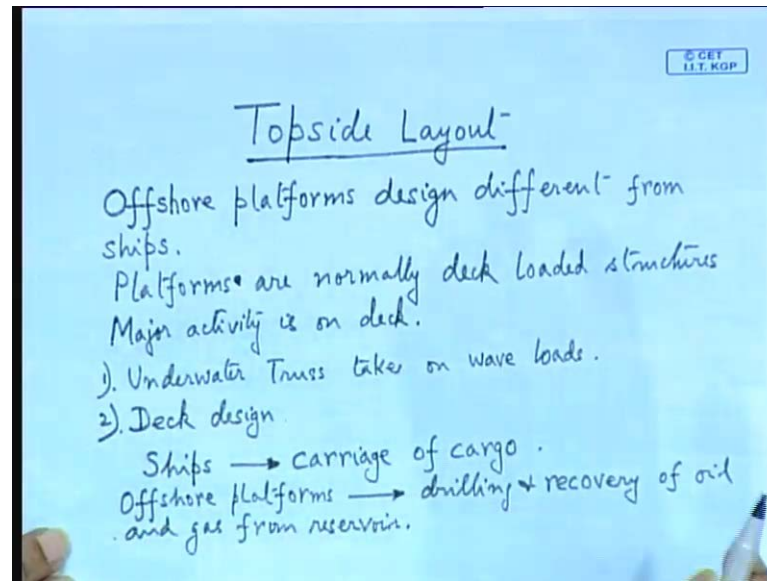 © CET
I.I.T. KGP
Topside Layout
Offshore platforms design different from
ships.
Platforms are normally deck loaded structures
Major activity is on deck.
1). Underwater Truss takes on wave loads.
2). Deck design
Ships → carriage of cargo.
Offshore platforms → drilling & recovery of oil
and gas from reservoir.